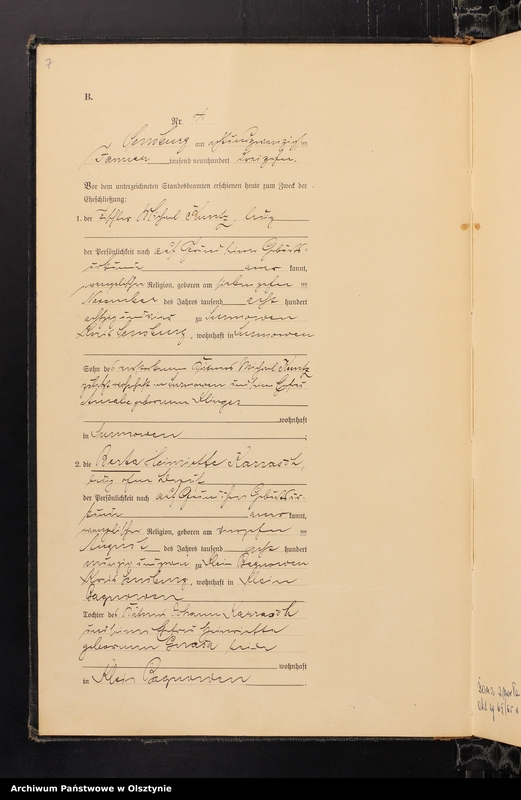 7
B.
Nr. 4
Sensburg am achtundzwanzigsten
Januar tausend neunhundert dreizehn.
Vor dem unterzeichneten Standesbeamten erschienen heute zum Zweck der
Eheschließung:
1. der Tischler Michael Kuntz, ledig
der Persönlichkeit nach auf Grund seiner Geburts-
urkunde anerkannt,
evangelischer Religion, geboren am siebenzehnten
November des Jahres tausend acht hundert
achtzig und vier zu Surmowen
Kreis Sensburg, wohnhaft in Surmowen
Sohn des verstorbenen Käthners Michael Kuntz
zuletzt wohnhaft in Surmowen und seiner Ehefrau
geborenen
wohnhaft
in Surmowen
2. die Berta Heinriette Karrasch,
ledig ohne Beruf
der Persönlichkeit nach auf Grund ihrer Geburtsur-
kunde anerkannt,
evangelischer Religion, geboren am
August des Jahres tausend acht hundert
neunzig und zu Klein Bagnowen
Kreis Sensburg, wohnhaft in Klein
Bagnowen
Tochter des Käthners Johann Karrasch
und seiner Ehefrau Henriette
geborenen beide
wohnhaft
in Klein Bagnowen
Archiwum Państwowe w Olsztynie